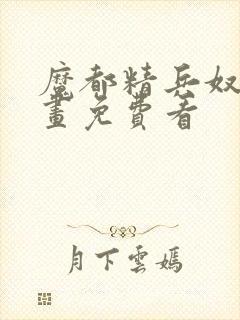 魔都精兵奴
畫免費看
月下雲嫣